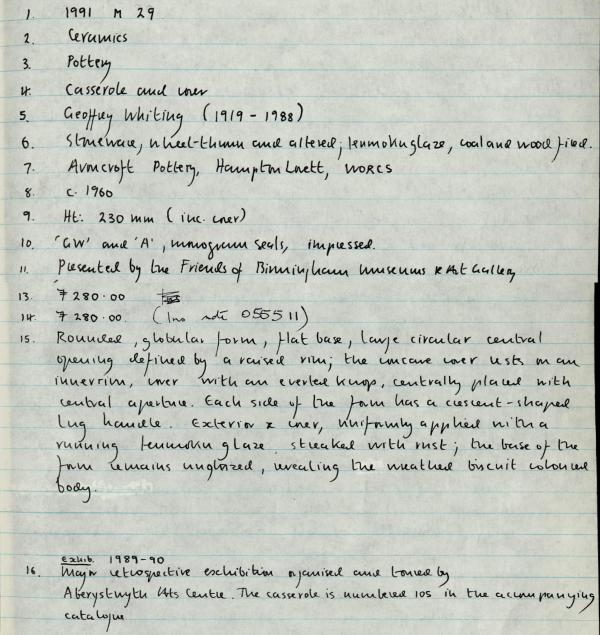 1. 1991 M 29
2. Ceramics
3. Pottery
4. Casserole and cover
5. Geoffrey Whiting (1919 - 1988)
6. Stoneware, wheel-thrown and altered; tenmoku glaze, coal and wood fired.
7. Avoncroft Pottery, Hampton Lovett, WORCS
8. c. 1960
9. Ht: 230 mm (inc. cover)
10. 'GW' and 'A', monogram seals, impressed.
11. Presented by the Friends of Birmingham Museums & Art Gallery
13. 280.00
14. 280.00. (Ins note 055511)
15. Rounded, globular form, flat base, large circular central
opening defined by a raised rim; the concave cover rests on an
inner rim, cover with an everted knop, centrally placed with
central aperture. Each side of the form has a crescent-shaped
lug handle. Exterior & cover, uniformly applied with a
running tenmoku glaze streaked with rust; the base of the
form remains unglazed, revealing the biscuit coloured
body.
exhib. 1989-90
16. Major retrospective exhibition organised and toured by
Aberystwyth Arts Centre. The casserole is numbered 105 in the accompanying
catalogue